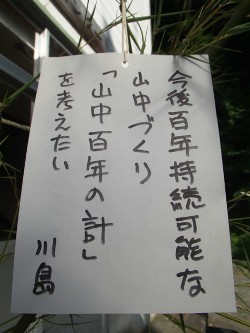 今後百年持続可能な
山中づくり
「山中百年の計」
を考えたい
川島